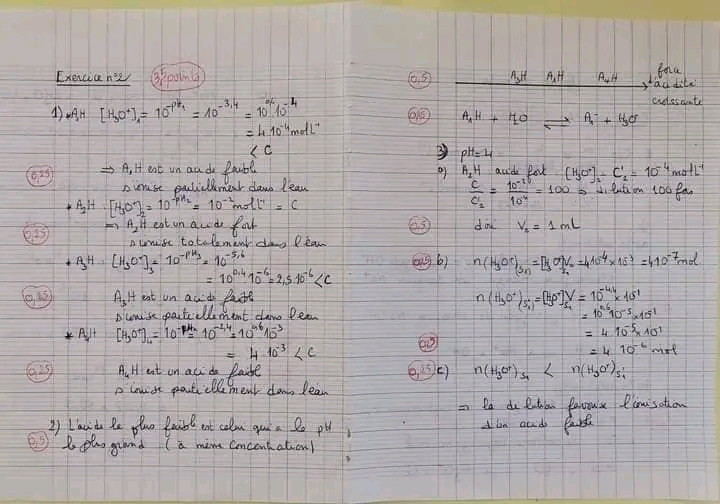 Exercice n°2 3,5 points
1) * A₁H [H₃O⁺]₁ = 10^-pH₁ = 10^-3,4 = 10^0,6 10^-4
= 4 10⁻⁴ mol L⁻¹
< C
0,25 ⇒ A₁H est un acide faible
s'ionise partiellement dans l'eau
* A₂H : [H₃O⁺]₂ = 10^-pH₂ = 10⁻² mol L⁻¹ = C
0,25 ⇒ A₂H est un acide fort
s'ionise totalement dans l'eau
* A₃H : [H₃O⁺]₃ = 10^-pH₃ = 10^-5,6
= 10^0,4 10⁻⁶ = 2,5 10⁻⁶ < C
0,25 A₃H est un acide faible
s'ionise partiellement dans l'eau
* A₄H [H₃O⁺]₄ = 10^-pH₄ = 10^-2,4 = 10^0,6 10⁻³
= 4 10⁻³ < C
0,25 A₄H est un acide faible
s'ionise partiellement dans l'eau
2) L'acide le plus faible est celui qui a le pH
0,5 le plus grand (à même concentration)
0,5 A₃H A₁H A₄H force
d'acidité
croissante
A₁H + H₂O ⇌ A₁⁻ + H₃O⁺
3) pH = 4
a) A₂H acide fort : [H₃O⁺]₂ = C'₂ = 10⁻⁴ mol L⁻¹
C/C'₂ = 10⁻²/10⁻⁴ = 100 ⇒ dilution 100 fois
0,5 d'où V₂ = 1 mL
b) n(H₃O⁺)S₁ = [H₃O⁺]S₁ V₂ = 4 10⁻⁴ × 10⁻³ = 4 10⁻⁷ mol
n(H₃O⁺)S'₁ = [H₃O⁺]S'₁ V = 10^-4,4 × 10⁻¹
= 10^0,6 10⁻⁵ × 10⁻¹
= 4 10⁻⁵ × 10⁻¹
= 4 10⁻⁶ mol
0,25 c) n(H₃O⁺)S₁ < n(H₃O⁺)S'₁
⇒ la dilution favorise l'ionisation
d'un acide faible